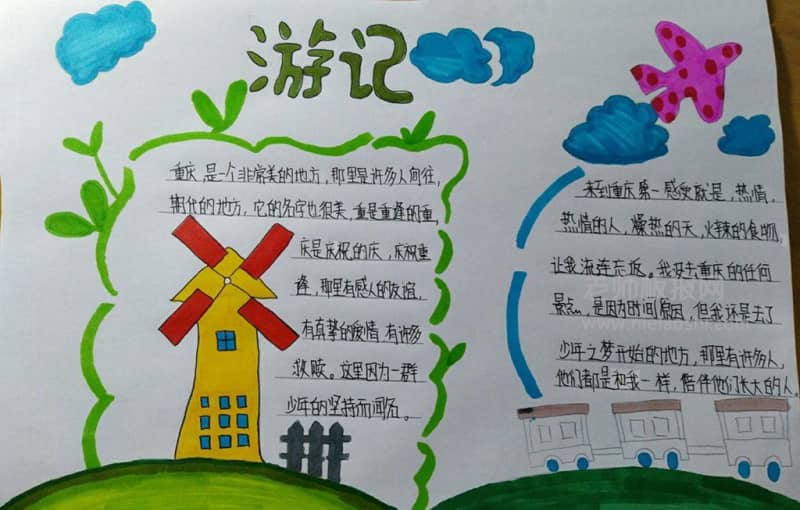 游记
重庆,是一个非常美的地方,那里是许多人向往,
期代的地方,它的名字也很美,重是重逢的重,
庆是庆祝的庆,庆祝重
逢,那里有感人的友谊,
有真挚的爱情,有许多
救赎。这里因为一群
少年的坚持而闻名。
来到重庆第一感觉就是,热情,
热情的人,燥热的天,火辣的食物,
让我流连忘返。我没去重庆的任何
景点,是因为时间原因,但我还是去了
少年之梦开始的地方,那里有许多人,
他们都是和我一样,陪伴他们长大的人。
老师板报网